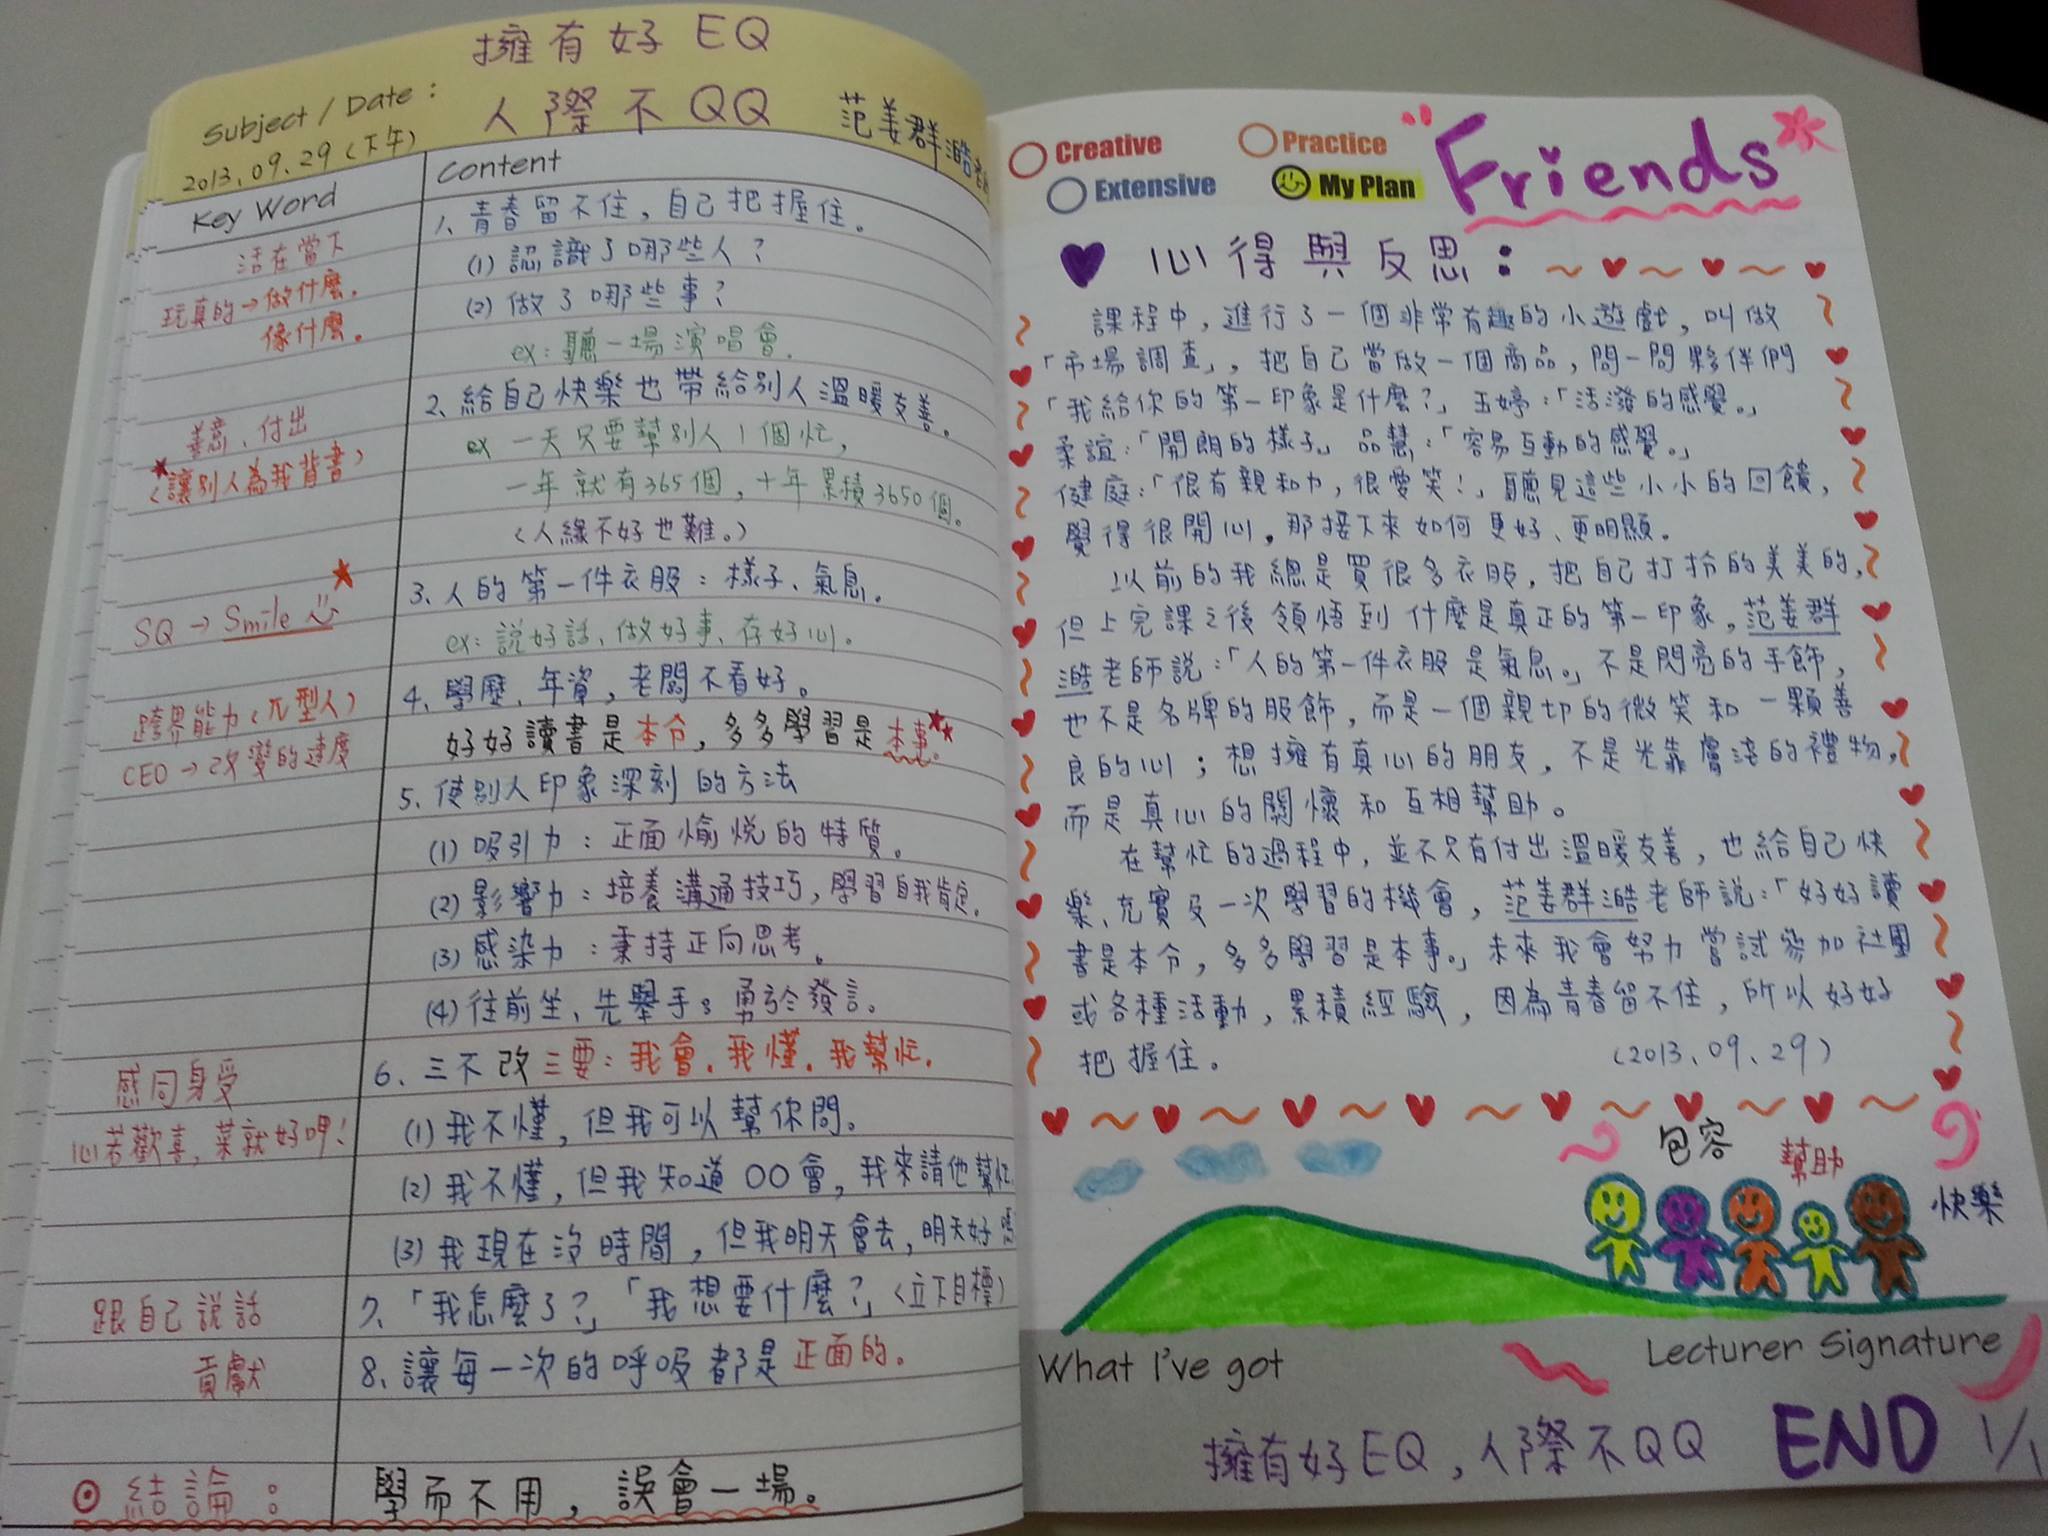 擁有好EQ
Subject / Date:
人際不QQ 范姜群澔
2013.09.29(下午)
Key Word
Content
1、青春留不住,自己把握住。
活在當下
(1) 認識了哪些人?
玩真的→做什麼,
像什麼。
(2) 做了哪些事?
ex:聽一場演唱會。
2、給自己快樂也帶給別人溫暖友善。
善意、付出
ex 一天只要幫別人1個忙,
(讓別人為我背書)
一年就有365個,十年累積3650個。
(人緣不好也難。)
3、人的第一件衣服:樣子、氣息。
SQ→Smile
ex:說好話、做好事、存好心。
4、學歷、年資,老闆不看好。
跨界能力(兀型人)
好好讀書是本分,多多學習是本事。
CEO→改變的速度
5、使別人印象深刻的方法
(1) 吸引力:正面愉悅的特質。
(2) 影響力:培養溝通技巧,學習自我肯定。
(3) 感染力:秉持正向思考。
(4) 往前坐、先舉手;勇於發言。
6、三不改三要:我會.我懂.我幫忙.
感同身受
(1) 我不懂,但我可以幫你問。
心若歡喜,菜就好呷!
(2) 我不懂,但我知道OO會,我來請他幫忙
(3) 我現在沒時間,但我明天會去,明天好嗎
跟自己說話
7、「我怎麼了?」「我想要什麼?」(立下目標)
貢獻
8、讓每一次的呼吸都是正面的。
結論:
學而不用,誤會一場。
Creative
Practice
Extensive
My Plan
"Friends
心得與反思:
課程中,進行了一個非常有趣的小遊戲,叫做
「市場調查」,把自己當做一個商品,問一問夥伴們
「我給你的第一印象是什麼?」玉婷:「活潑的感覺。」
柔誼:「開朗的樣子」品慧:「容易互動的感覺。」
健庭:「很有親和力,很愛笑!」聽見這些小小的回饋,
覺得很開心。那接下來如何更好、更明顯.
以前的我總是買很多衣服,把自己打扮的美美的,
但上完課之後領悟到什麼是真正的第一印象,范姜群
澔老師說:「人的第一件衣服是氣息。」不是閃亮的手飾,
也不是名牌的服飾,而是一個親切的微笑和一顆善
良的心;想擁有真心的朋友,不是光靠膚淺的禮物,
而是真心的關懷和互相幫助。
在幫忙的過程中,並不只有付出溫暖友善,也給自己快
樂、充實及一次學習的機會,范姜群澔老師說:「好好讀
書是本分,多多學習是本事。」未來我會努力嘗試參加社團
或各種活動,累積經驗,因為青春留不住,所以好好
把握住。
(2013、09、29)
包容
幫助
快樂
What I've got
Lecturer Signature
擁有好EQ,人際不QQ
END 1/1